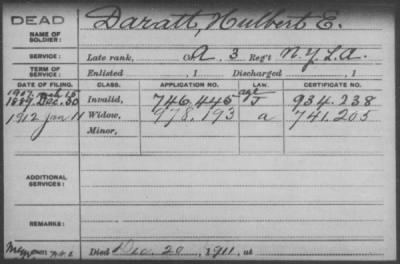 DEAD
NAME OF SOLDIER: Daratt, Hulbert E.
SERVICE: Late rank, Co. A, 3 Reg't N.Y.L.A.
TERM OF SERVICE: Enlisted , 1 Discharged , 1
DATE OF FILING. CLASS. APPLICATION NO. LAW. CERTIFICATE NO.
1907 15 agt
1889 Dec. 30 Invalid, 746.445 J 934.238
1912 Jan 11 Widow, 978.193 a 741.205
Minor,
ADDITIONAL SERVICES:
REMARKS:
Died Dec. 20, 1911, at